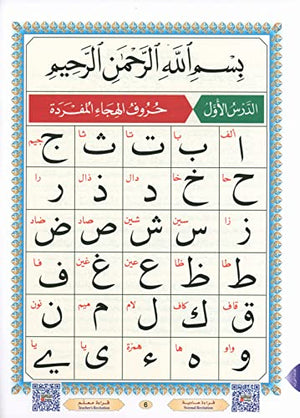 بِسْمِ ٱللَّهِ ٱلرَّحْمَٰنِ ٱلرَّحِيمِ
الدَّرْسُ الأَوَّل حُرُوفُ الهِجَاءِ المُفْرَدَة
ألف با تا ثا جيم
ا ب ت ث ج
حا خا دال ذال را
ح خ د ذ ر
زا سين شين صاد ضاد
ز س ش ص ض
طا ظا عين غين فا
ط ظ ع غ ف
قاف كاف لام ميم نون
ق ك ل م ن
واو ها همزة يا يا
و ه ء ي ے
قراءة عادية 6 قراءة معلم
Normal Recitation Teacher's Recitation